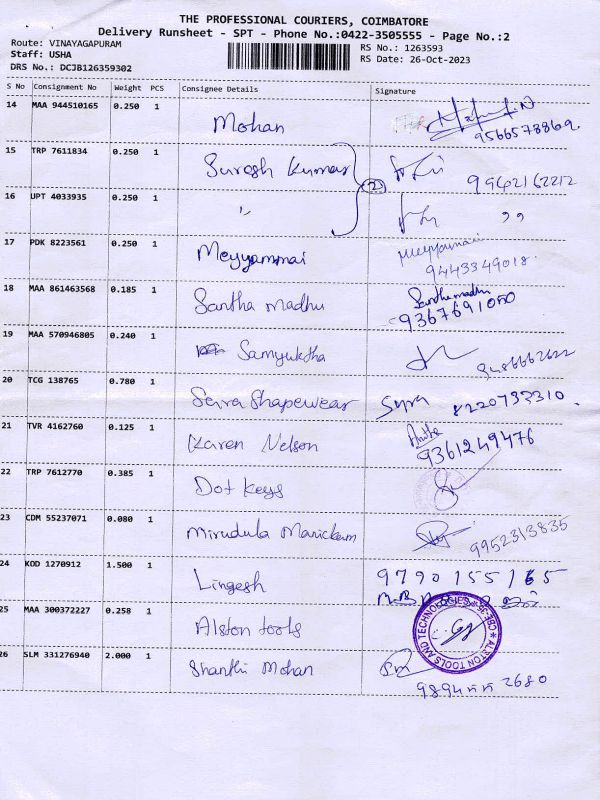 THE PROFESSIONAL COURIERS, COIMBATORE
Delivery Runsheet - SPT - Phone No.:0422-3505555 - Page No.:2
Route: VINAYAGAPURAM
Staff: USHA
DRS No.: DCJB126359302
RS No.: 1263593
RS Date: 26-Oct-2023
S No Consignment No Weight PCS Consignee Details Signature
14 MAA 944510165 0.250 1 Mohan 9566578869.
15 TRP 7611834 0.250 1 Suresh Kumar 9942162212
16 UPT 4033935 0.250 1 " (2) ,,
17 PDK 8223561 0.250 1 Meyyammai Meyyammai 9443349018.
18 MAA 861463568 0.185 1 Santha madhu Santhamadhu 9367691050
19 MAA 570946805 0.240 1 Samyuktha 9486662622
20 TCG 138765 0.780 1 Seira Shapewear 8220733310.
21 TVR 4162760 0.125 1 Karen Nelson 9361249476
22 TRP 7612770 0.385 1 Dot Keys
23 CDM 55237071 0.080 1 Mirudula Manickam 9952313835
24 KOD 1270912 1.500 1 Lingesh 9790155165
25 MAA 300372227 0.258 1 Alston tools ALSTON TOOLS AND TECHNOLOGIES CBE-35
26 SLM 331276940 2.000 1 Shanthi Mohan 2680